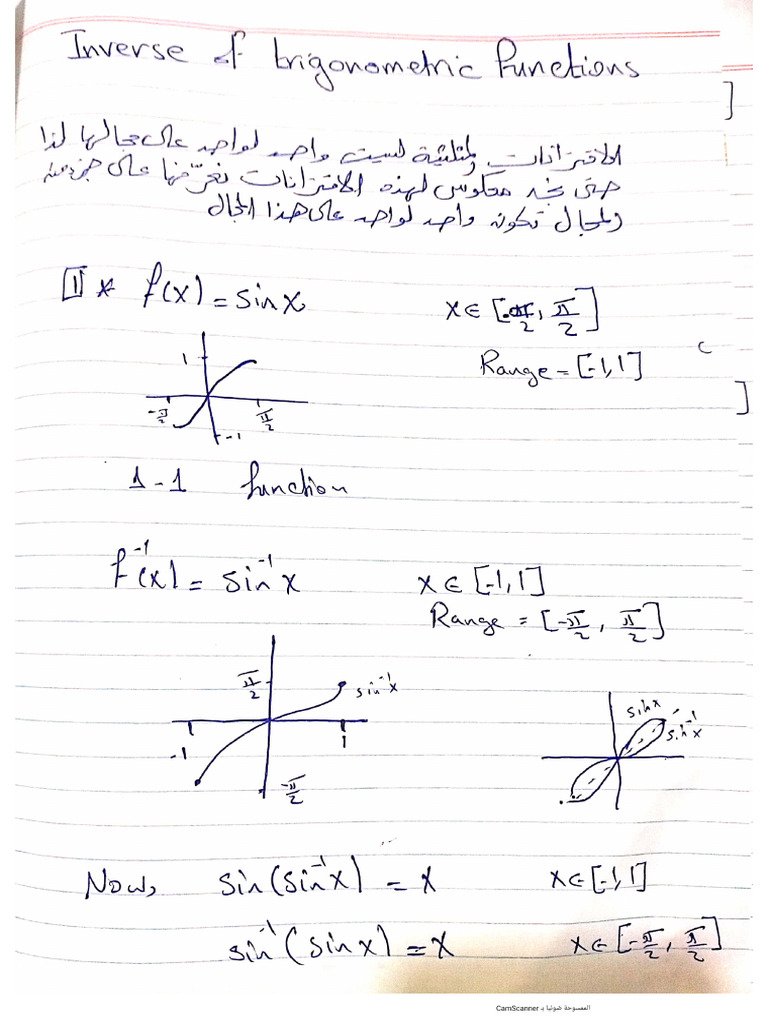 Inverse of trigonometric Functions
الاقترانات المثلثية ليست واحد لواحد على مجالها لذا
حتى نجد معكوس لهذه الاقترانات نعرّفها على جزء من
المجال تكون واحد لواحد على هذا المجال
1 * f(x) = sin x x ∈ [-π/2, π/2]
Range = [-1, 1]
1
-π/2 π/2
-1
1-1 function
f⁻¹(x) = sin⁻¹x x ∈ [-1, 1]
Range = [-π/2, π/2]
π/2 sin⁻¹x
-1 1
-π/2
sin x
sin⁻¹x
Now, sin(sin⁻¹x) = x x ∈ [-1, 1]
sin⁻¹(sin x) = x x ∈ [-π/2, π/2]
الممسوحة ضوئيا بـ CamScanner